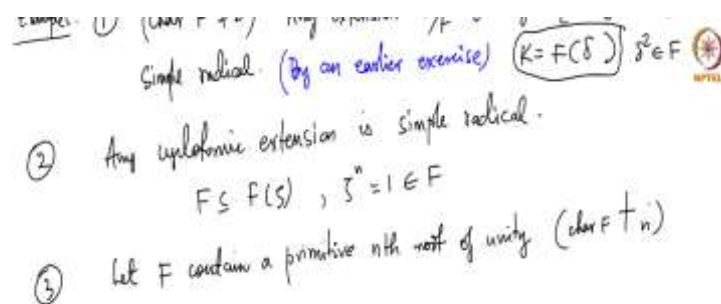 Simple radical. (By an earlier exercise) K = F(δ) δ² ∈ F
NPTEL
② Any cyclotomic extension is simple radical.
F ⊆ F(ζ), ζⁿ = 1 ∈ F
③ Let F contain a primitive nth root of unity (char F ∤ n)